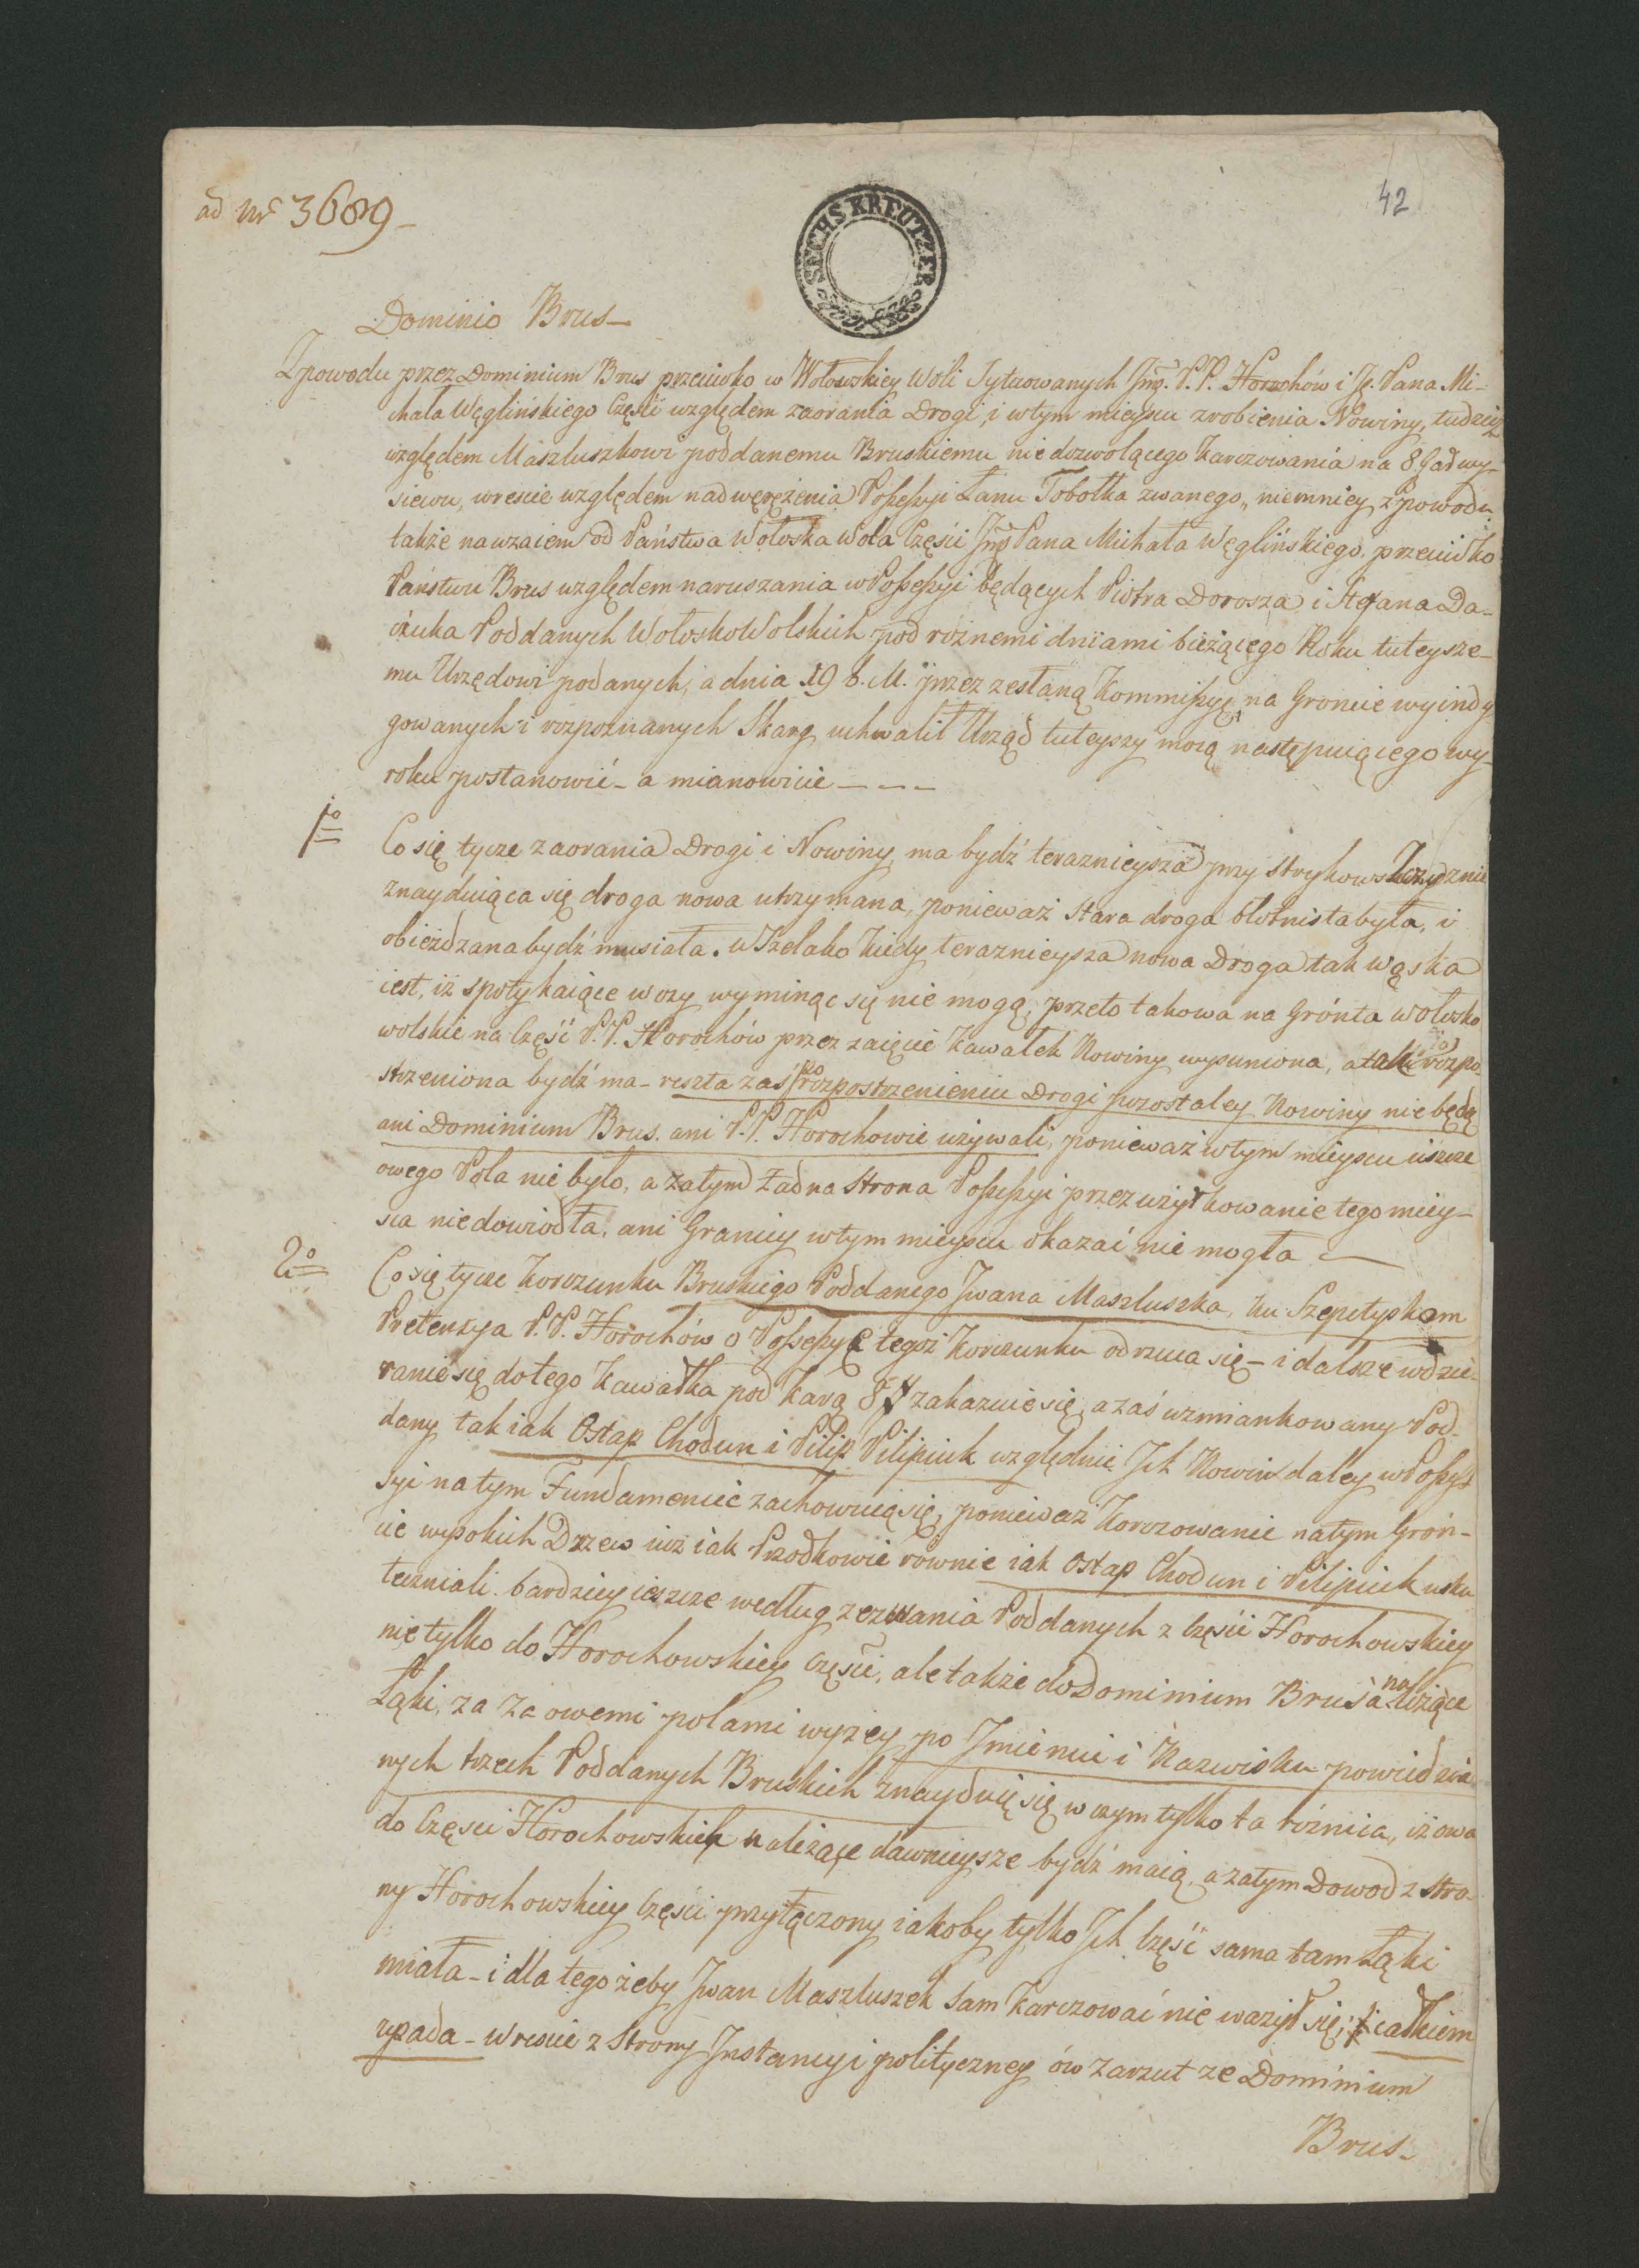 ad Nr 3689
42
SECHS KREUTZER
Dominio Brus
Zpowodu przez Dominium Brus przeciwko w Wołoszkiey Woli Sytuowanych Jmć. P.P. Horochów i Je. Pana Mi-
chała Węglińskiego Części względem zaorania Drogi, i wtym mieyscu zrobienia Nowiny, tudzież
względem Maszluszkowi poddanemu Bruskiemu niedozwolącego Karczowania na 8 wy-
siewu, wreście względem nadwerężenia Poßeßyi Łanu Tobołka zwanego, niemniey zpowodu
także nawzaiem od Państwa Wołoska Wola Części Jmć Pana Michała Węglińskiego przeciwko
Państwu Brus względem naruszania wPoßeßyi będących Piotra Dorosza i Stefana Da-
ćzuka Poddanych WołoskoWolskich pod roznemi dniami bieżącego Roku tuteysze-
mu Urzędowi podanych, a dnia 19 b. M. przez zesłaną Kommißyę na Groncie wyindy-
gowanych i rozpoznanych Skarg, uchwalił Urząd tuteyszy mocą następuiącego wy-
roku postanowić - a mianowicie - - -
1o
Co się tycze zaorania Drogi i Nowiny, ma bydź teraznieysza przy
znayduiąca się droga nowa utrzymana, ponieważ stara droga błotnista była, i
obieżdzana bydź musiała. wSzelako kiedy teraznieysza nowa Droga tak wąska
iest, iż spotykaiące wozy wyminąc się nie mogą, przeto takowa na Grónta wołosko
wolskie na Część P.P. Horochów przez zaięcie kawałek Nowiny wysuniona, a tak rozpo-
strzeniona bydź ma - reszta zaś po rozpostrzenieniu Drogi pozostałey Nowiny nie będą
ani Dominium Brus. ani P.P. Horochowie używali, ponieważ wtym mieyscu ieszcze
owego Pola nie było, a zatym żadna Strona Poßeßyi przez użytkowanie tego miey-
sca niedowiodła, ani Granicy wtym mieyscu okazać nie mogła -
2o
Co się tycze Korczunku Bruskiego Poddanego Jwana Maszluszka, ku Szepetyskom
Pretensya P.P. Horochów o Poßeßyę tegoż Korczunku odrzuca się - i dalsze wdzie-
ranie się do tego Kawałka pod karą 8 zakazuie się, a zaś wzmiankowany Pod-
dany tak iak Ostap Chodun i Pilip Pilipiuk względnie Jch Nowin daley wPoßeß
syi na tym Fundamencie zachowuią się, ponieważ Korczowanie natym Gron-
cie wysokich Drzew iuż iak Przodkowie równie iak Ostap Chodun i Pilipiuk usku
teczniali. bardziey ieszcze według zeznania Poddanych z Części Horochowskiey
nie tylko do Horochowskiey Części, ale także do Dominium Brusa należące
Łąki, za za owemi polami wyżey po Jmieniu i Nazwisku powiedzia-
nych trzech Poddanych Bruskich znayduią się w czym tylko ta różnica, iż owa
do Części Horochowskiey należące dawnieysze bydź maią, a zatym Dowod z stro-
ny Horochowskiey Części przyłączony iakoby tylko Jch Część sama tam Łąki
miała - i dla tego żeby Jwan Maszluszek sam Karczować nie ważył się; całkiem
upada - Wreście z Strony Jnstancyi polityczney ów Zarzut ze Dominium
Brus-